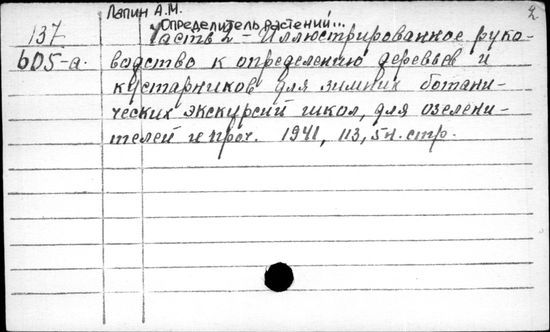 2
Лапин А.М.
Определитель растений...
137 Часть 2 - Иллюстрированное руко-
605-а. водство к определению деревьев и
кустарников для зимних ботани-
ческих экскурсий школ, для озелени-
телей и проч. 1941, 113, 5н. стр.